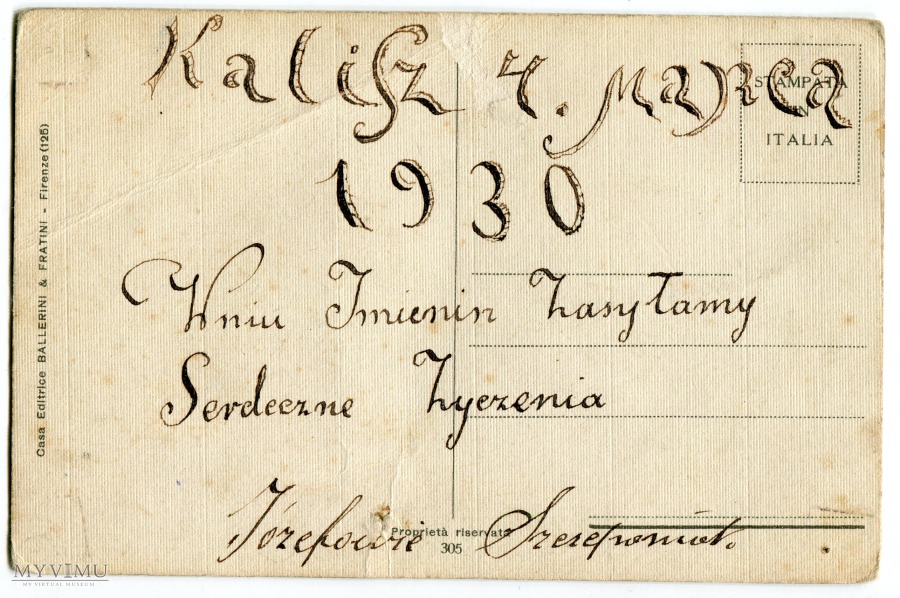 Kalisz 4. Marca
1930
STAMPATA
IN
ITALIA
Casa Editrice BALLERINI & FRATINI - Firenze (125)
Wniu Imienin Zasyłamy
Serdeczne Życzenia
Józefowie
Proprietà riservata
305
MYVIMU
MY VIRTUAL MUSEUM